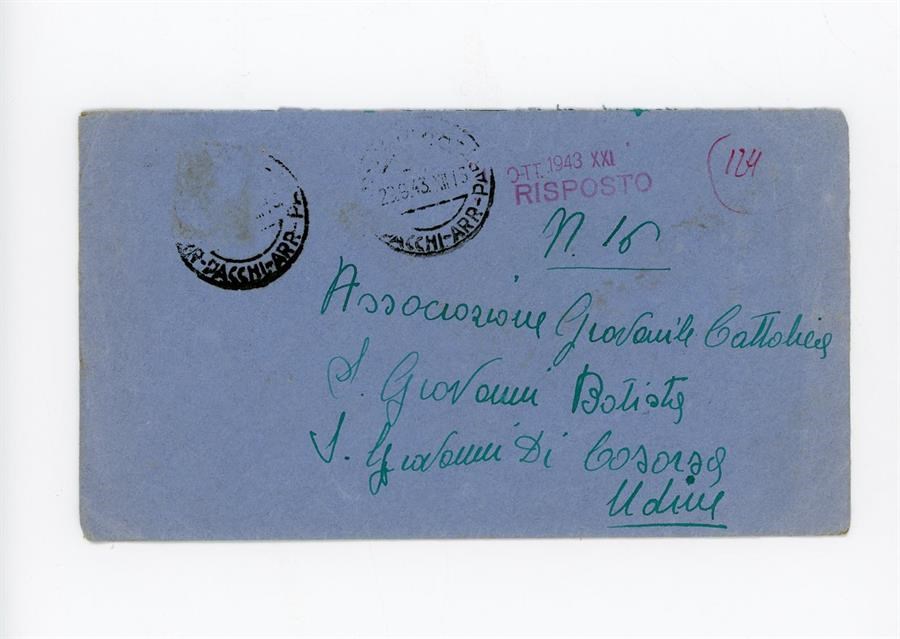 OR-PACCHI-ARR-P
PACCHI-ARR-PA
OTT. 1943 XXI
RISPOSTO
124
N. 16
Associazione Giovanile Cattolica
S. Giovanni Batista
S. Giovanni Di Casarsa
Udine